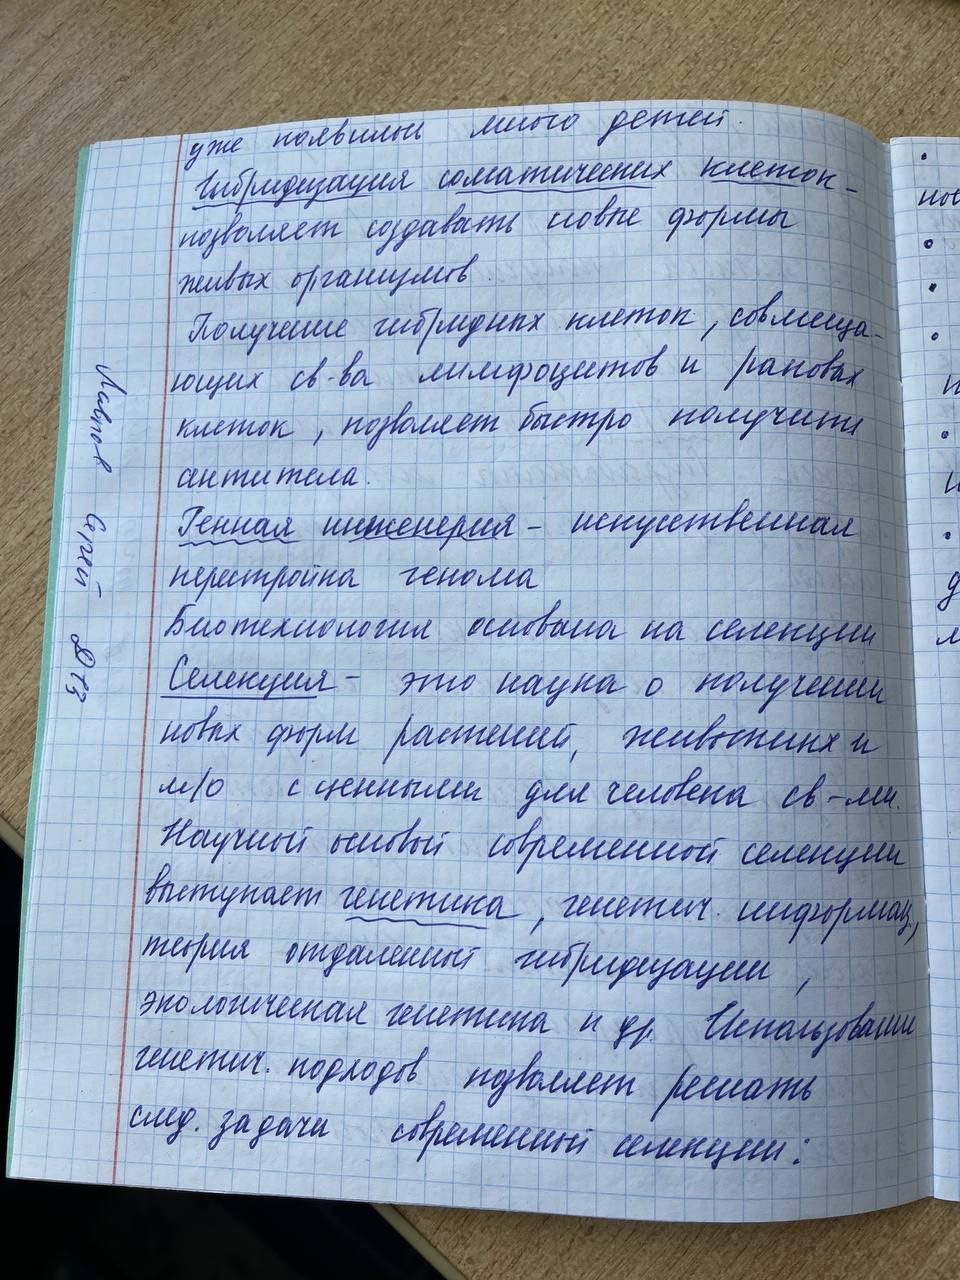 уже появилось много детей.
Гибридизация соматических клеток -
позволяет создавать новые формы
живых организмов.
Получение гибридных клеток, совмеща-
ющих св-ва лимфоцитов и раковых
клеток, позволяет быстро получить
антитела.
Генная инженерия - искусственная
перестройка генома
Биотехнология основана на селекции
Селекция - это наука о получении
новых форм растений, животных и
м/о с ценными для человека св-ми.
Научной основой современной селекции
выступает генетика, генетич. информац.,
теория отдаленной гибридизации,
экологическая генетика и др. Использование
генетич. подходов позволяет решать
след. задачи современной селекции:
Сергей